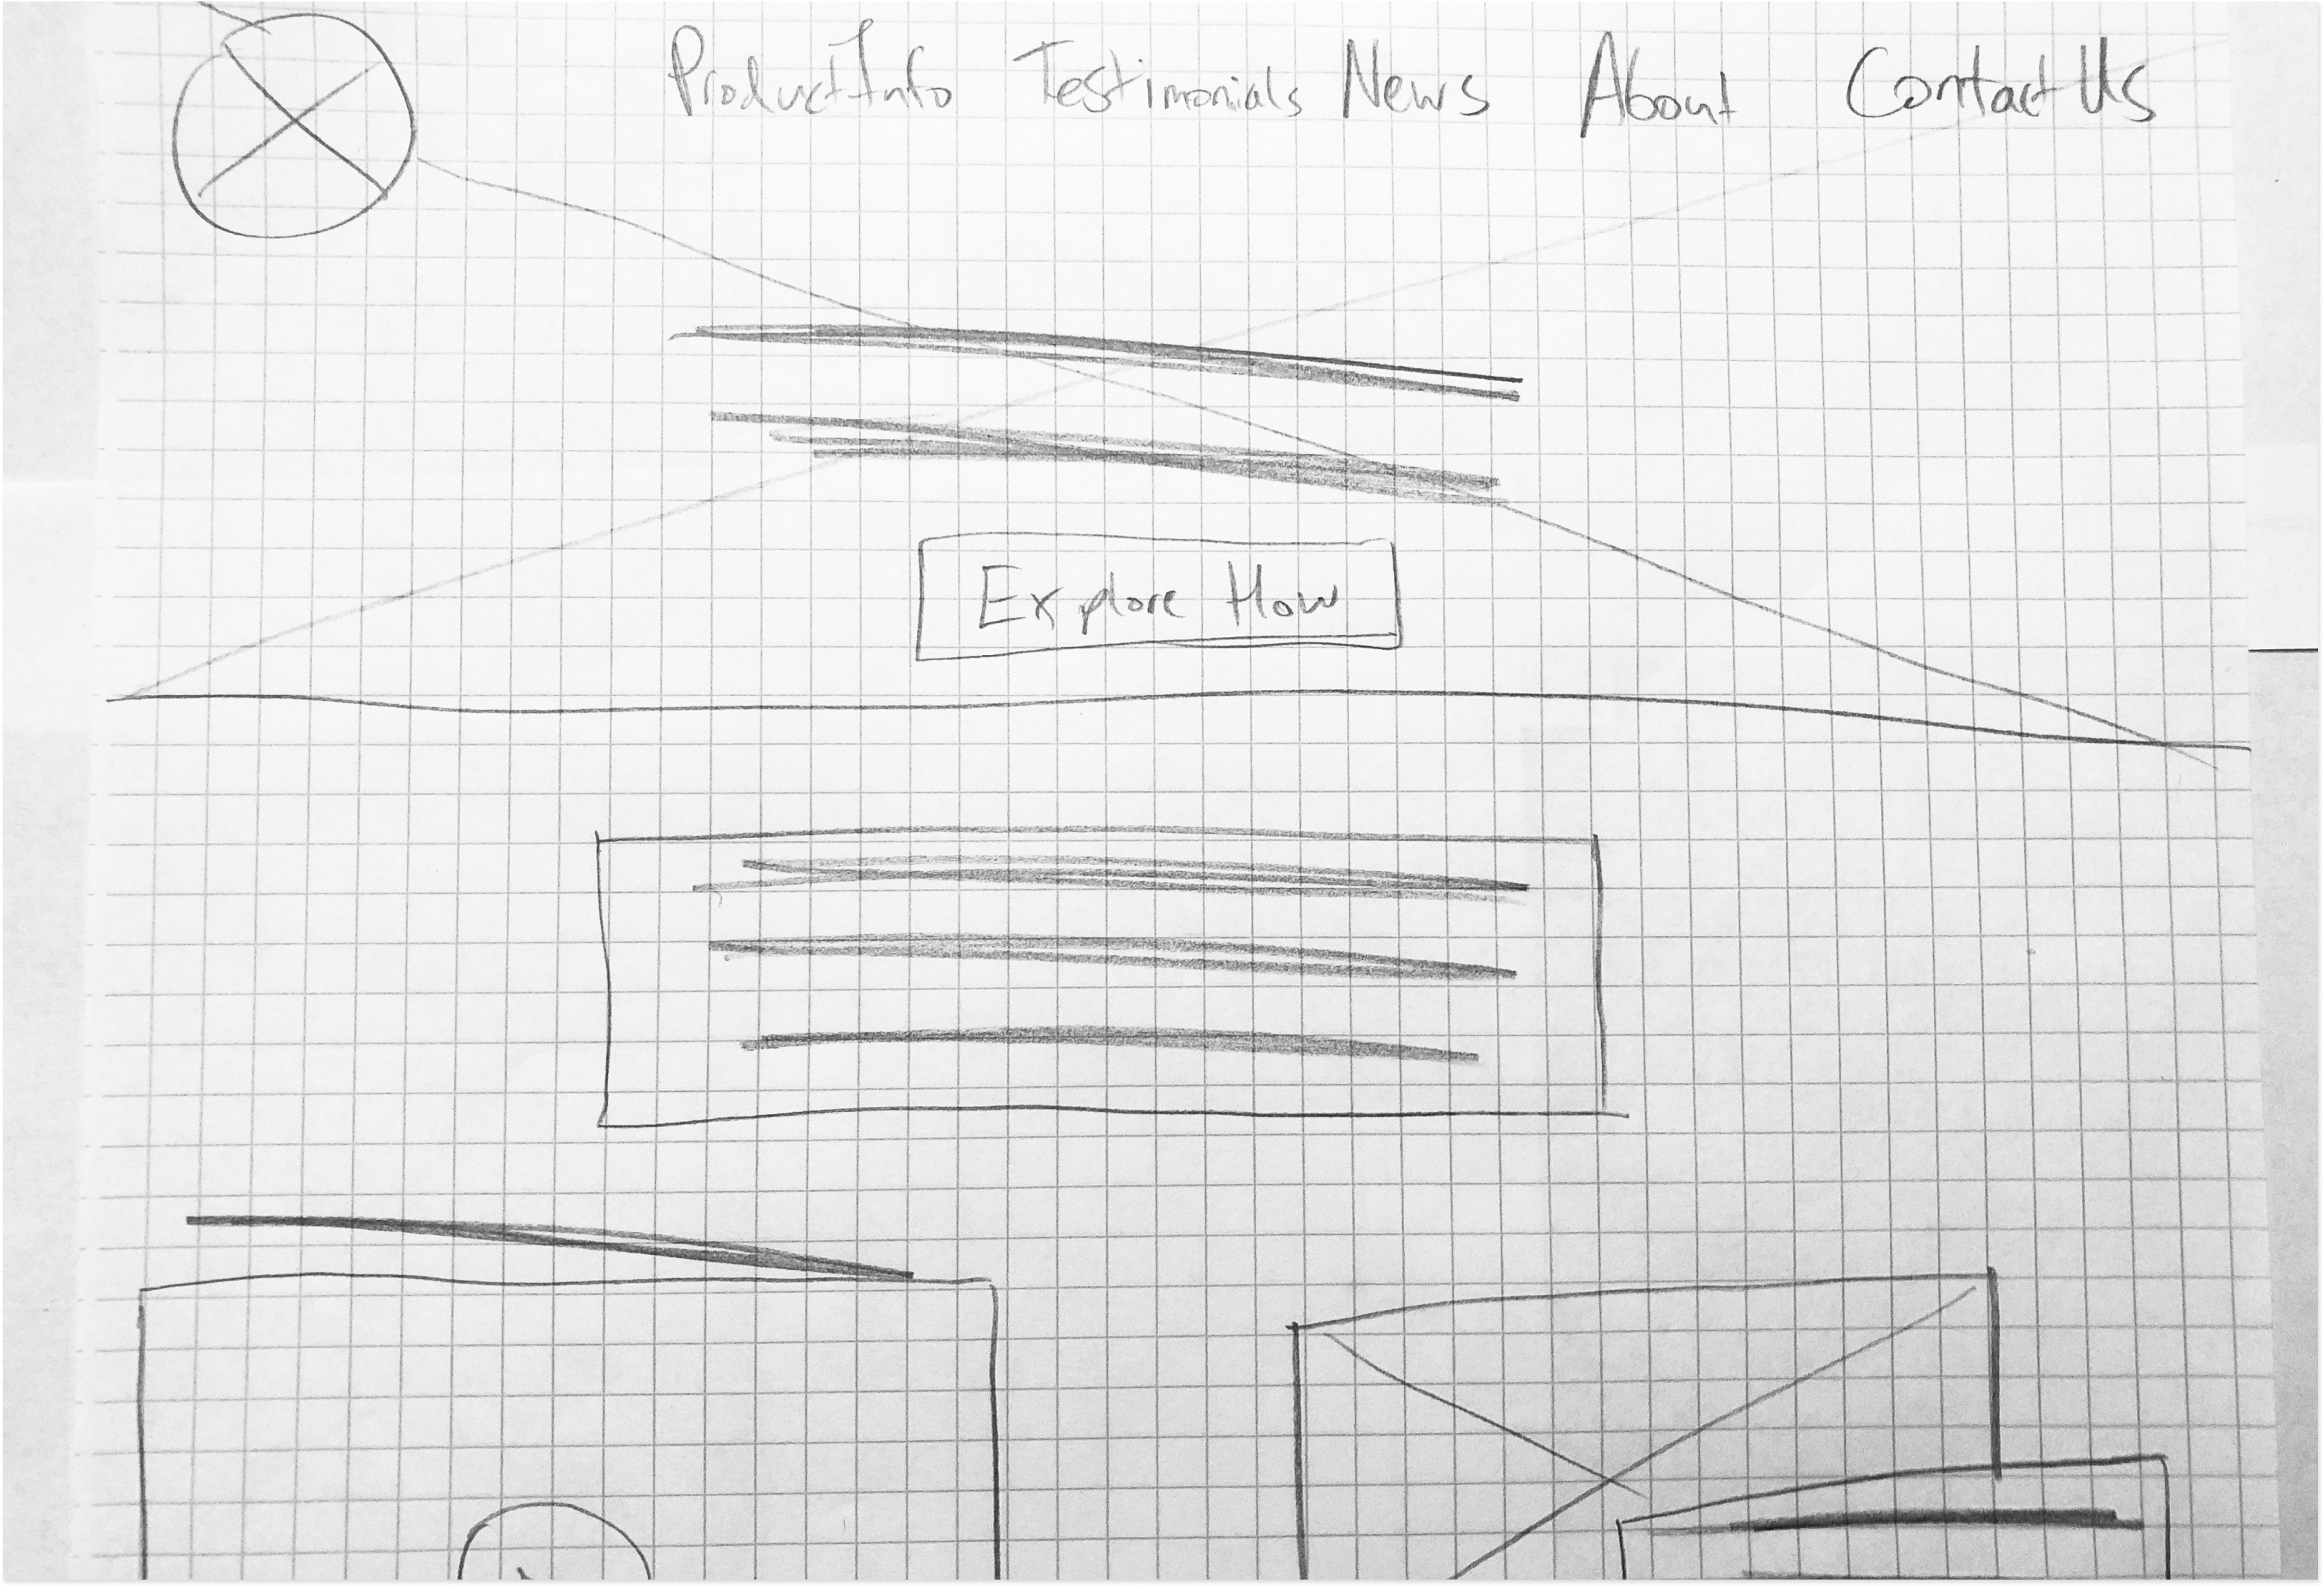 Product Info Testimonials News About Contact Us
Explore How